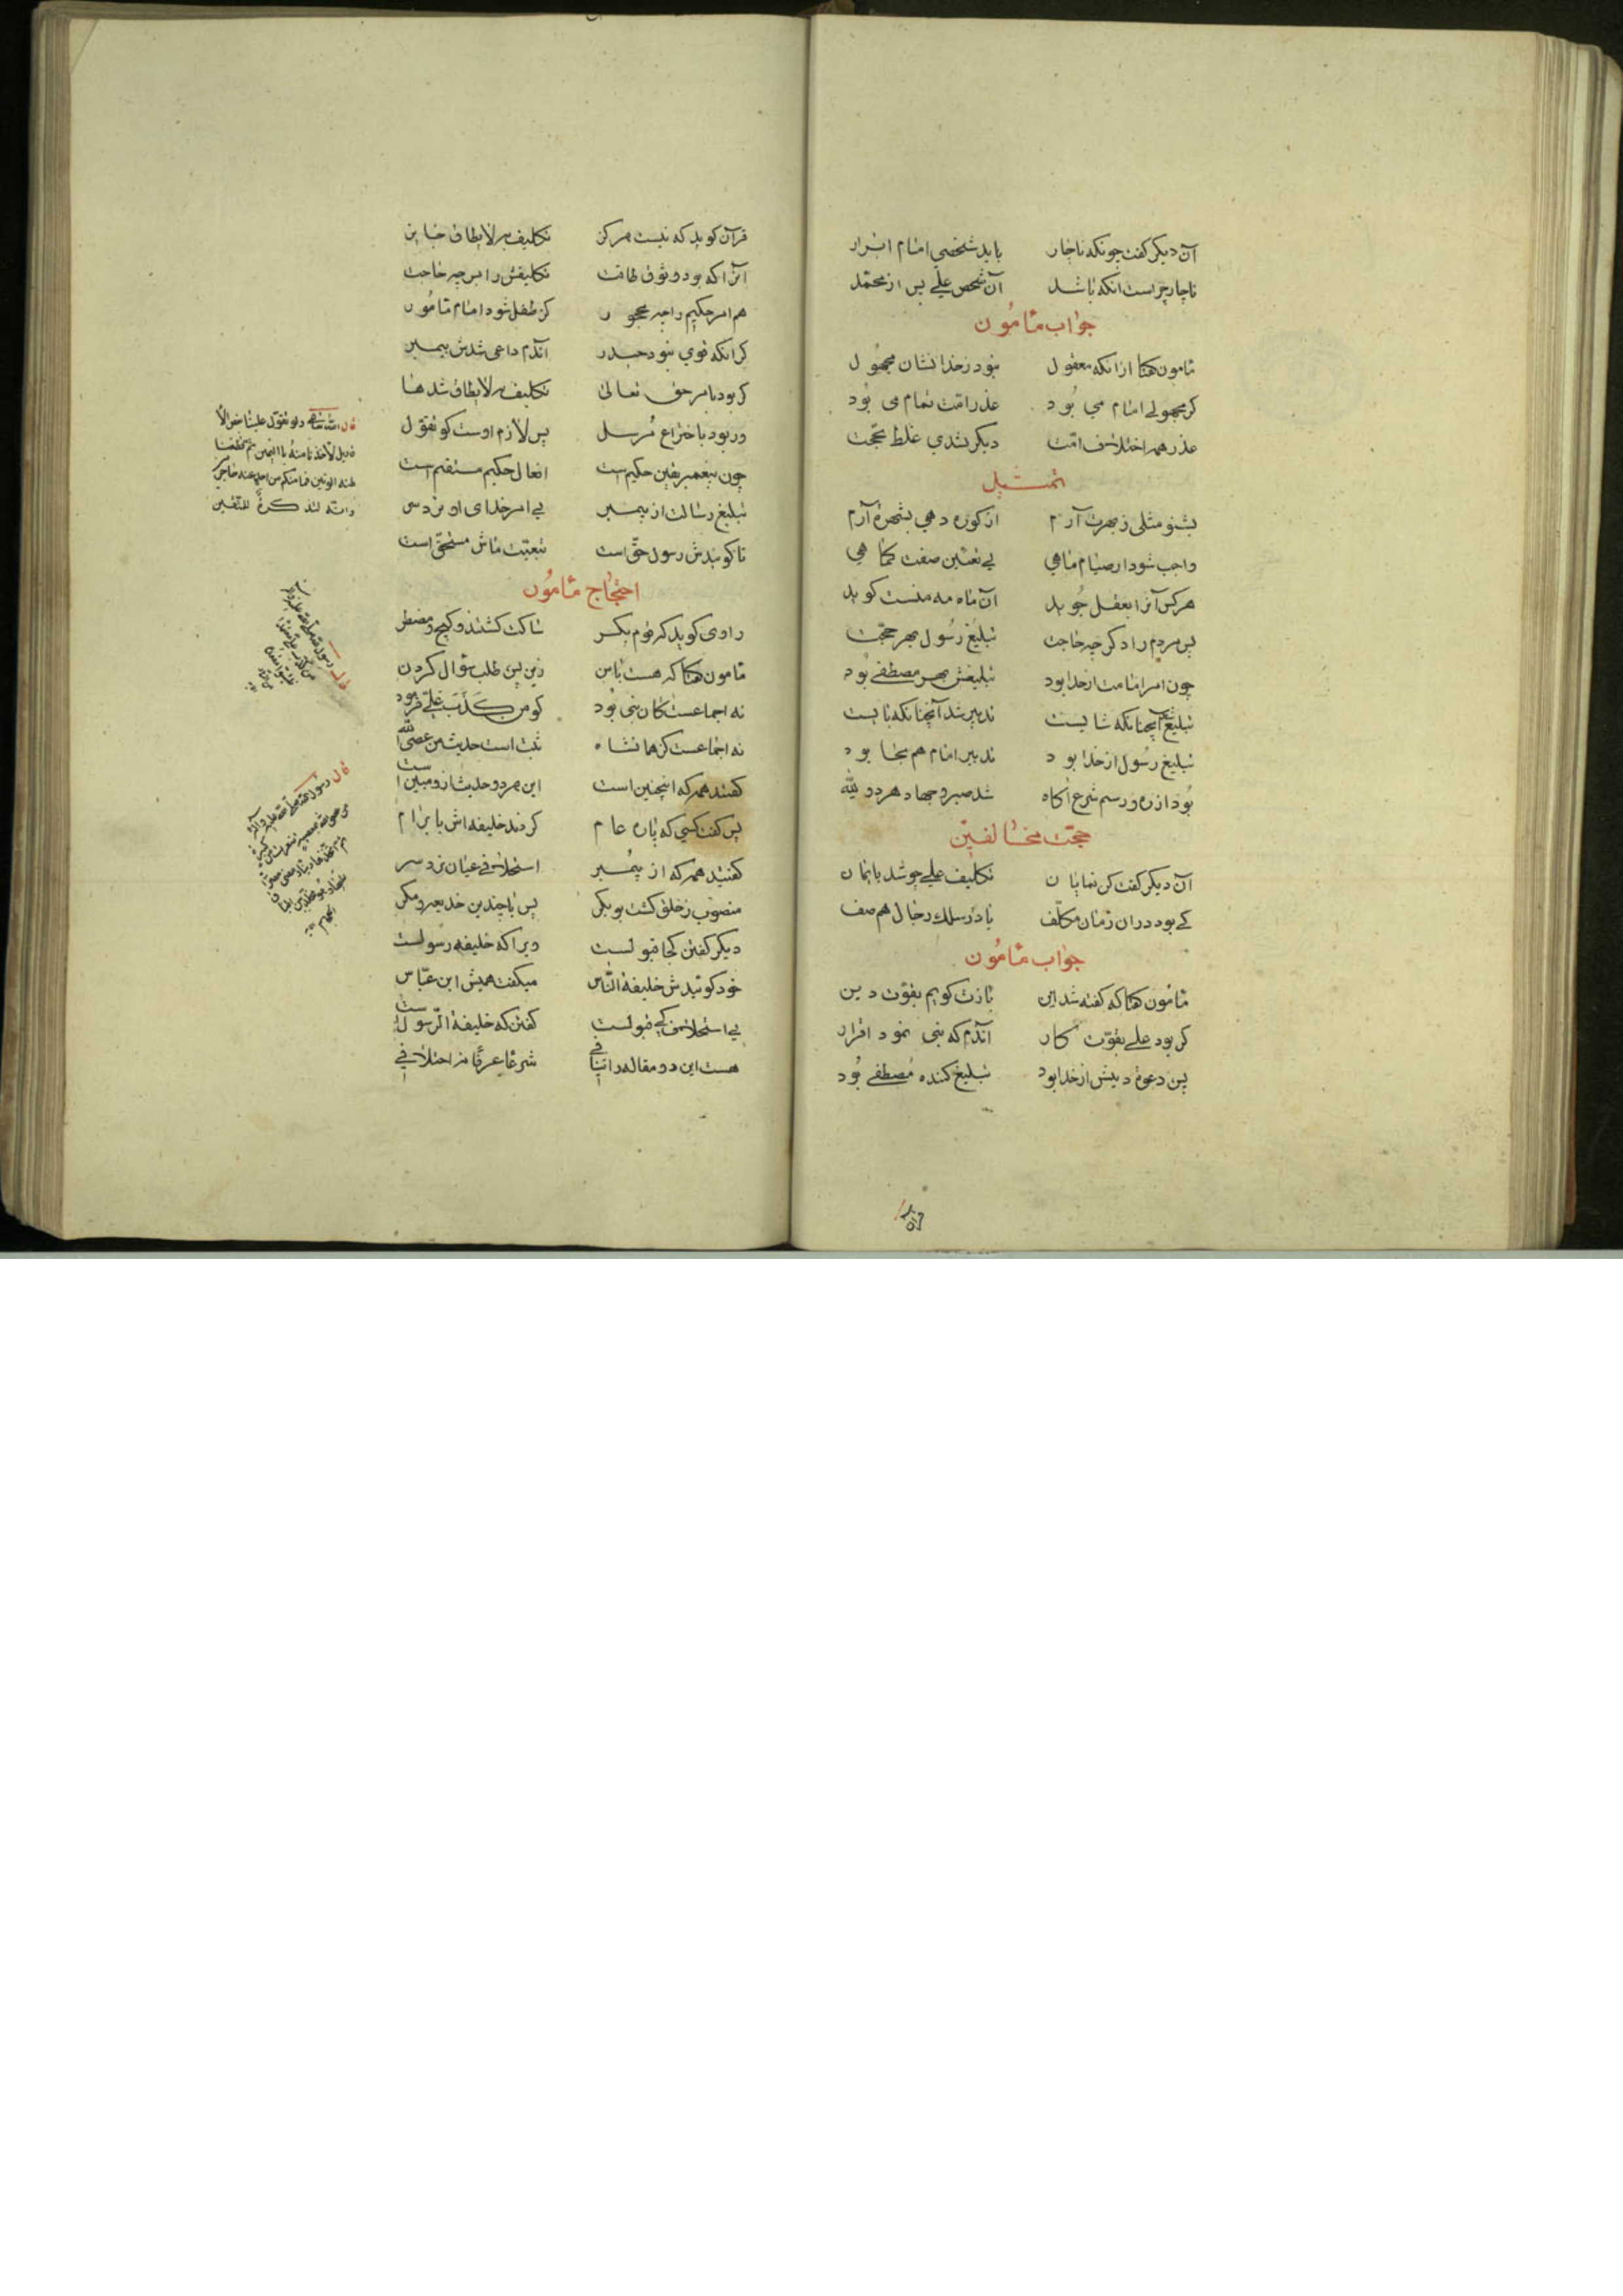 آن دیکر کفت چونکه ناچار باید شخصی امام ابرار
ناچار چراست انکه باشد آن شخص علی پس از محمّد
جواب مامون
مامون هکتا ازانکه معقول نبود زخدا نشان مجهول
کر مجهولی امام می بُود عذر امّت تمام می بُود
عذر همه اختلاف امّت دیکر نشدی غلط محجّت
تمثیل
بشنو مثلی ز بهرت آرم از کوزه دهی بشهره آرم
واجب شود ار صیام ماهی بی تعیّن صفت کماهی
هرکس آنرا بعقل جوید آن ماه مه منست کوید
پس مردم را دکر چه حاجت تبلیغ رسول بهر حجّت
چون امر امامت از خدا بود تبلیغش بهر مصطفی بُود
تبلیغ آنچنانکه شایست تدبیر شد آنچنانکه بایست
تبلیغ رسول از خدا بود تدبیر امام هم بجا بود
بُود از ره و رسم شرع آکاه شد صبر و جهاد هر دو لله
حجّت مخالفین
آن دیکر کفت کن نمایان تکلیف علی چو شد بایمان
کی بود در ان زمان مکلّف یا در سلک رجال هم صف
جواب مامون
مامون هکتا که کفته شد این بازت کویم بقوّت دین
کر بود علی بقوّت کار آندم که نبی نمود اقرار
پس دعوة دینش از خدا بود تبلیغ کننده مصطفی بُود
قرآن کوید که نیست هرکز تکلیف به لایطاق جایز
آنرا که بود و ثوق طاقت تکلیفش را بس چه حاجت
هم امر حکیم را چه محجور کز طفل شود امام مامور
کر انکه قوی نبود حیدر آندم داعی شدش پیمبر
کر بود بامر حق تعالی تکلیف به لایطاق شد ها
ور بود باختراع مُرسل پس لازم اوست کو تقوّل
چون پیغمبر یقین حکیم است افعال حکیم مستقیم است
تبلیغ رسالت از پیمبر بی امر خدای او نزد سر
تا کویندش رسول حقّ است تبعیّت ماش مستحقّ است
احتجاج مامون
راوی کوید که قوم یکسر ساکت کشتند و کیج و مضطر
مامون هکتا که هست با من زین پس طلب سؤال کردن
نه اجماعست کان نبی بُود کو من کَذَبَ عَلَیّ فرمود
نه اجماعست کز همانشاه ثبت است حدیث من عصی الله
کفتند همه که اینچنین است این هر دو حدیث از و مبین است
پس کفت کسی که پاره عام کردند خلیفه اش بابرام
کفتید همه که از پیمبر استخلافی عیان نزد سر
منصوب زخلق کشت بوبکر پس با چندین خدیعه و مکر
دیکر کفتن کجا قبولست ویرا که خلیفه رسولست
خود کوئیدش خلیفة النّاس میکفت همیش ابن عبّاس
بی استخلاف کی قبولست کفتن که خلیفة الرّسول است
هست این دو مقاله را تنافی شرعًا عرفًا نه اختلافی
قال الله تعالی ولو تقوّل علینا بعض الأ
قاویل لأخذنا منهُ بالیمین ثم لقطعنا
منه الوتین فما منکم من احد عنه حاجزین
وانّه لتذکرةٌ للمتّقین
قال رسول الله صلی الله علیه وآله
من کذب علیّ متعمّدا
فلیتبوّأ مقعده
من النّار
قال رسول الله صلی الله علیه وآله